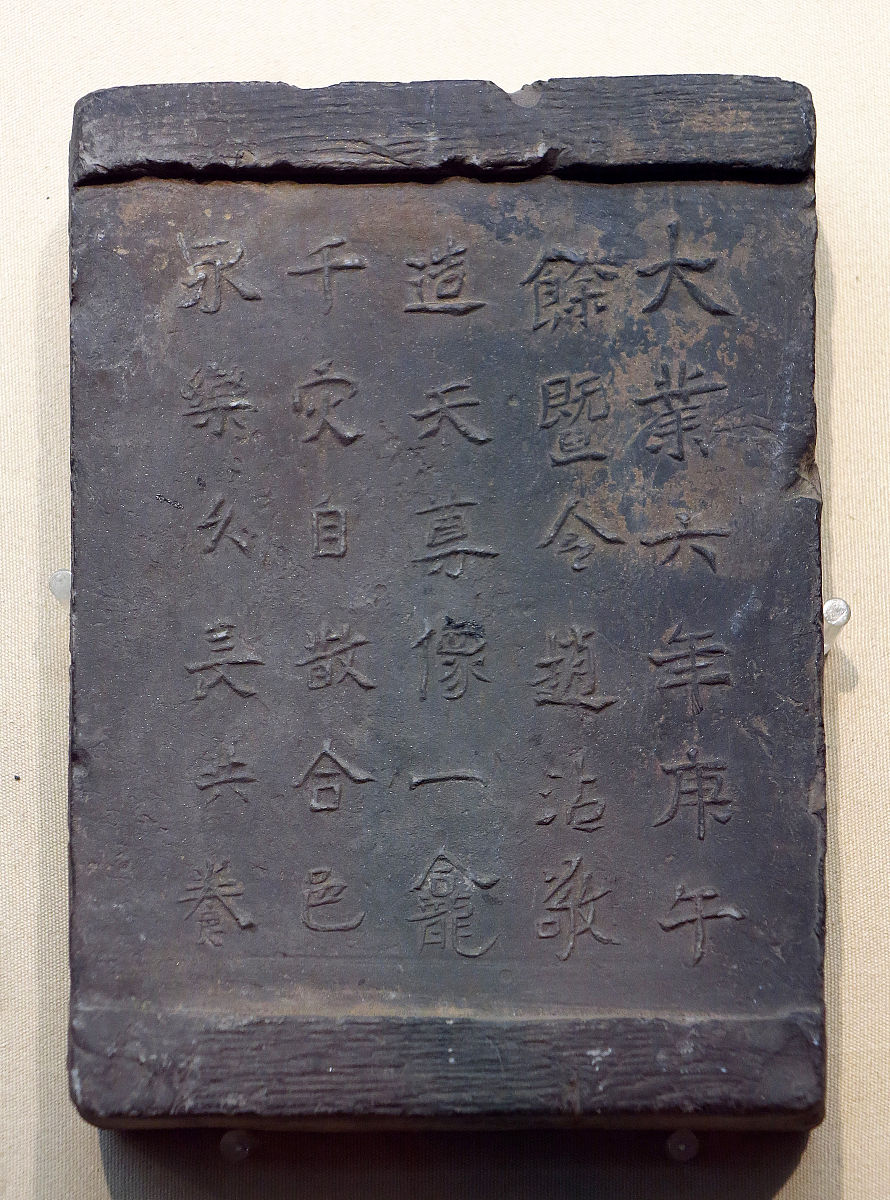 大業六年庚午
餘暨令趙沾敬
造天尊像一龕
千灾自散合邑
永樂久長共養